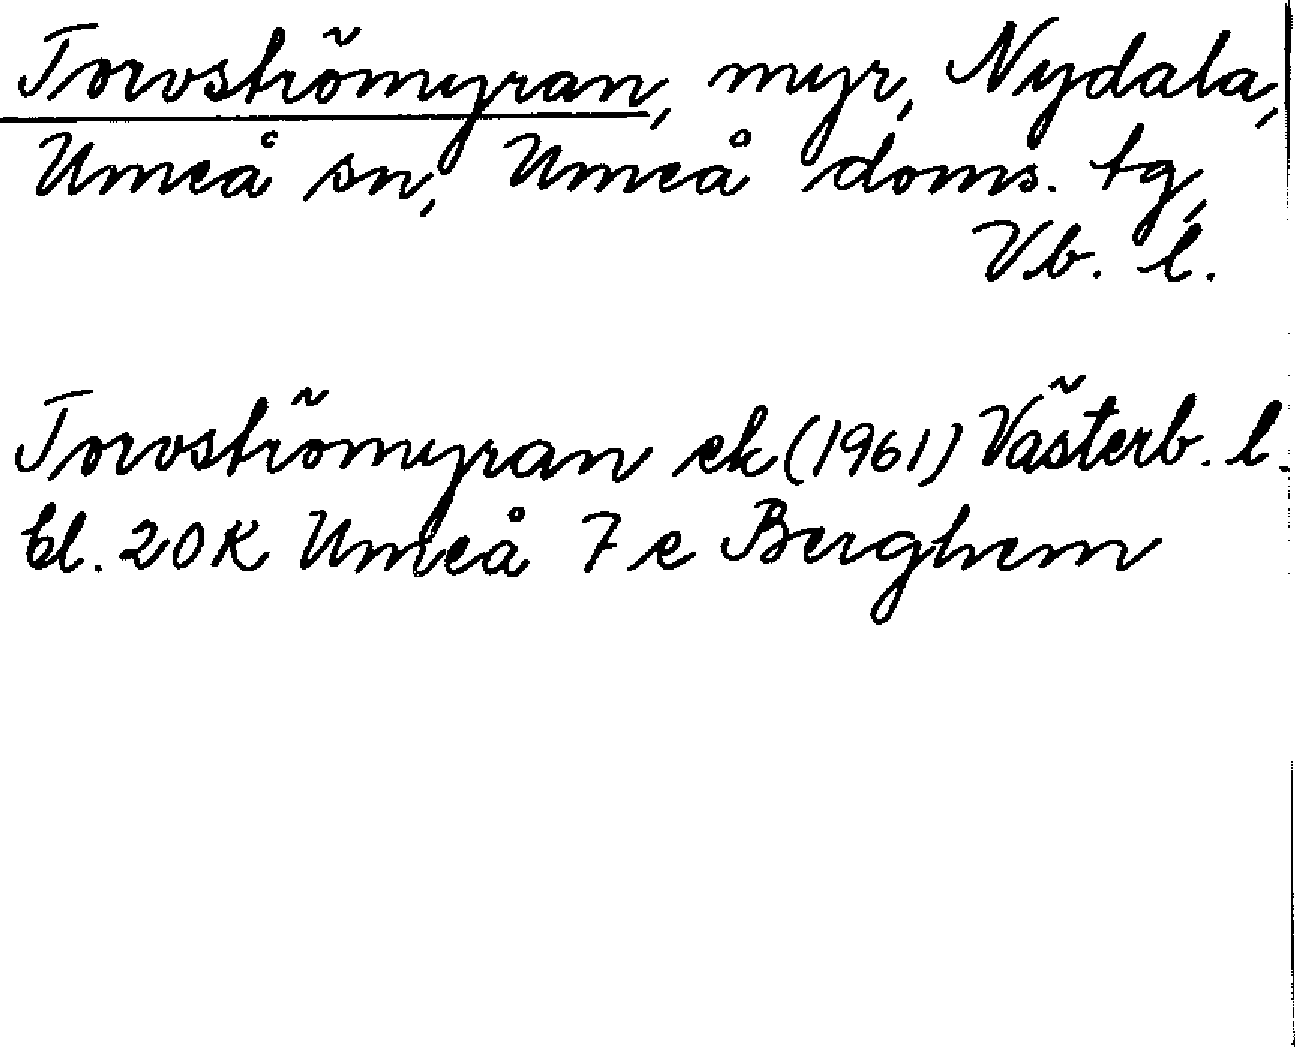 Torvströmyran, myr, Nydala,
Umeå sn, Umeå doms. tg,
Vb. l.
Torvströmyran ek (1961) Västerb. l.
bl. 20K Umeå 7e Berghem